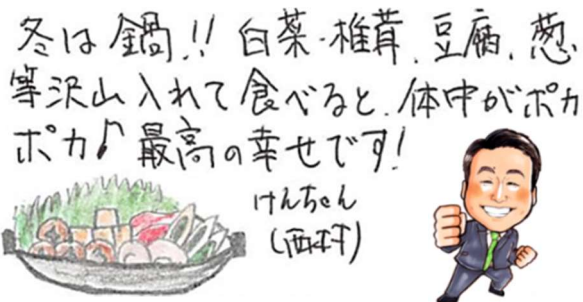 冬は鍋!! 白菜・椎茸、豆腐、葱
等沢山入れて食べると、体中がポカ
ポカ♪ 最高の幸せです!
けんちゃん
(西村)